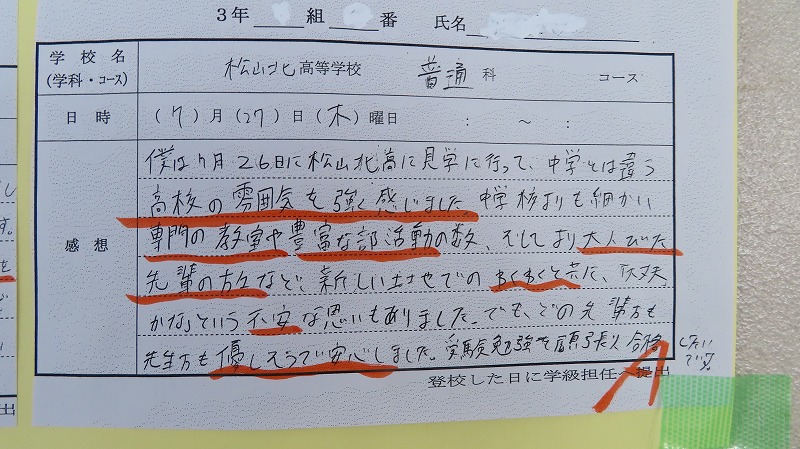 3年 組 番 氏名
学校名 松山北高等学校 普通科 コース
(学科・コース)
日時 (7)月(27)日(木)曜日 : ~ :
僕は7月26日に松山北高に見学に行って、中学とは違う
高校の雰囲気を強く感じました。中学校よりも細かい
専門の教室や豊富な部活動の数、そしてより大人びた
感想
先輩の方々など、新しい土地でのわくわくと共に、「大丈夫
かな」という不安な思いもありました。でも、どの先輩方も
先生方も優しそうで安心しました。受験勉強を頑張り、合格したい
です。
登校した日に学級担任へ提出
し
す。
を
と
出